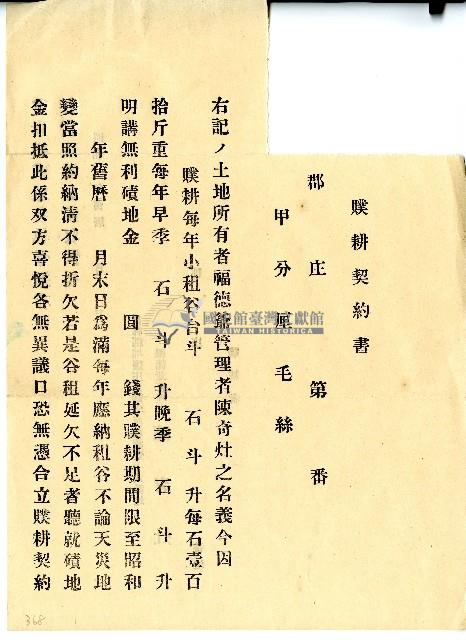 贌耕契約書
郡 庄 第 番
甲 分 厘 毛 絲
右記ノ土地所有者福德爺管理者陳奇灶之名義今因
贌耕每年小租谷台斗 石 斗 升每石壹百
拾斤重每年早季 石 斗 升晚季 石 斗 升
明講無利磧地金 圓 錢其贌耕期間限至昭和
年舊曆 月末日爲滿每年應納租谷不論天災地
變當照約納清不得折欠若是谷租延欠不足者聽就磧地
金扣抵此係双方喜悅各無異議口恐無憑合立贌耕契約
國史館臺灣文獻館
TAIWAN HISTORICA
368